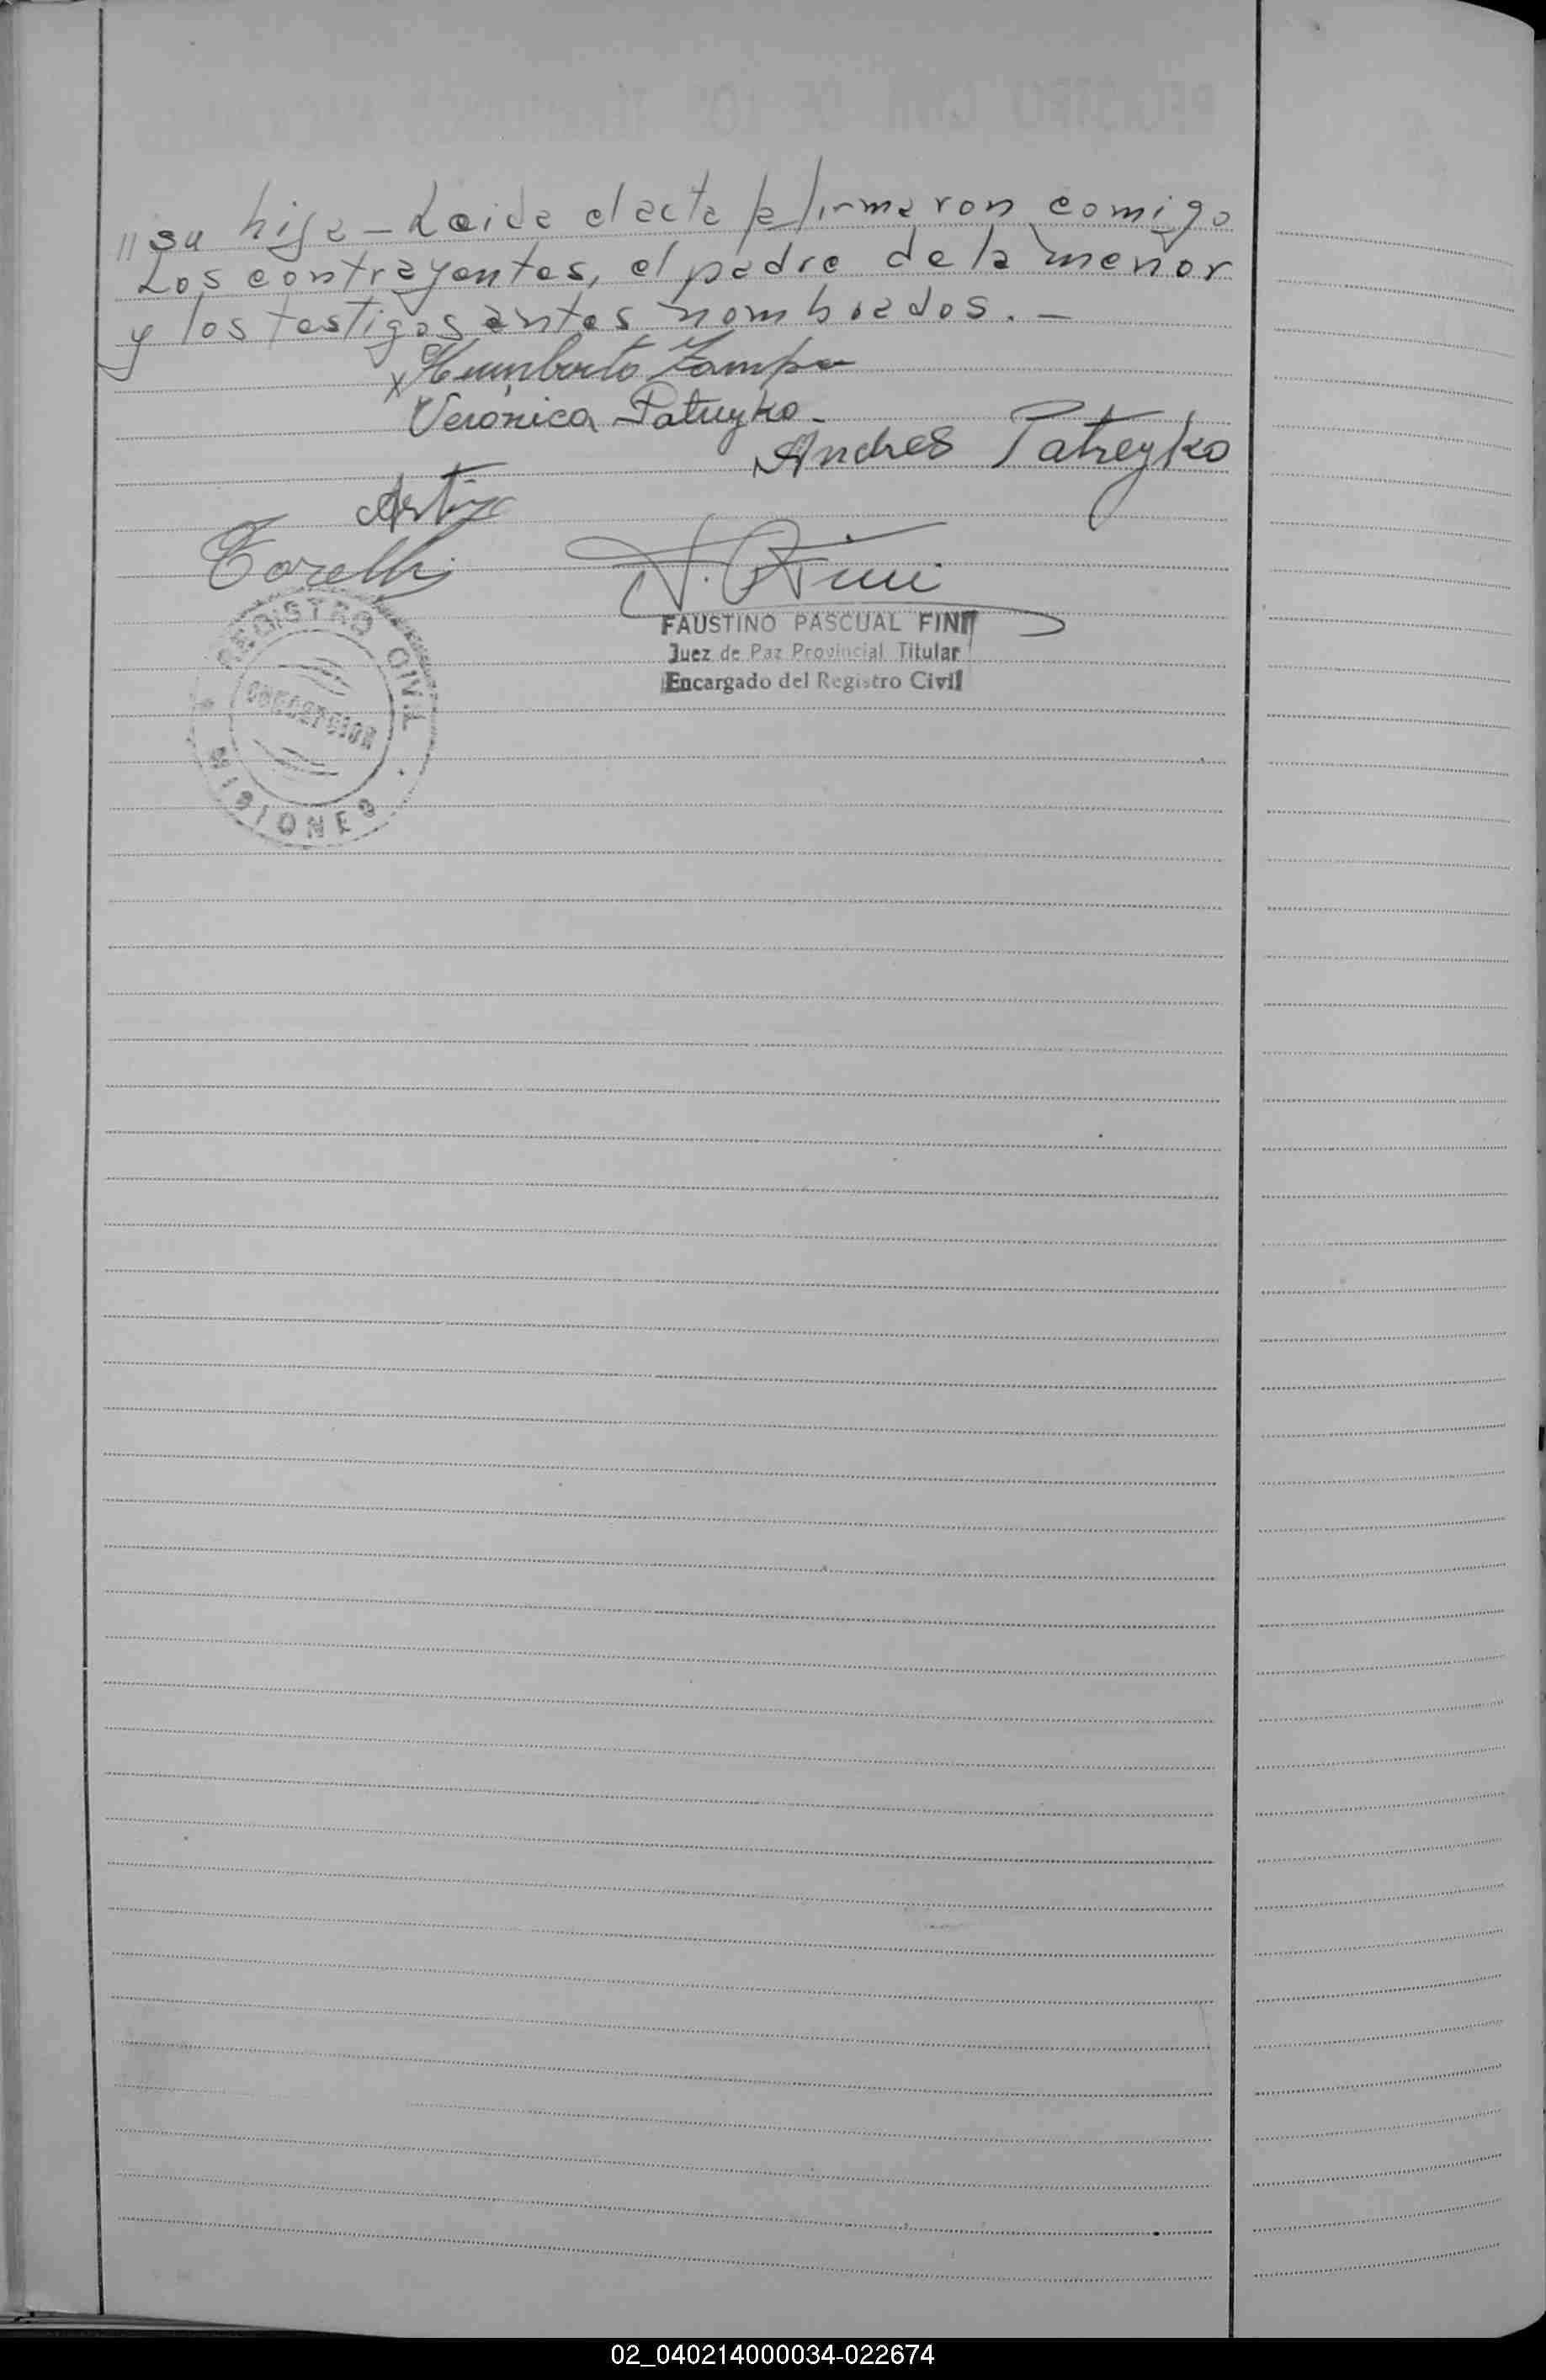 // su hija - Leida el acta la firmaron comigo
Los contrayentes, el padre de la menor
y los testigos antes nombrados. -
x Humberto Zampa
Verónica Patreyko -
Andres Patreyko
Torelli
F. P. Fini
FAUSTINO PASCUAL FINI
Juez de Paz Provincial Titular
Encargado del Registro Civil
REGISTRO CIVIL
CONCEPCION
MISIONES
02_040214000034-022674